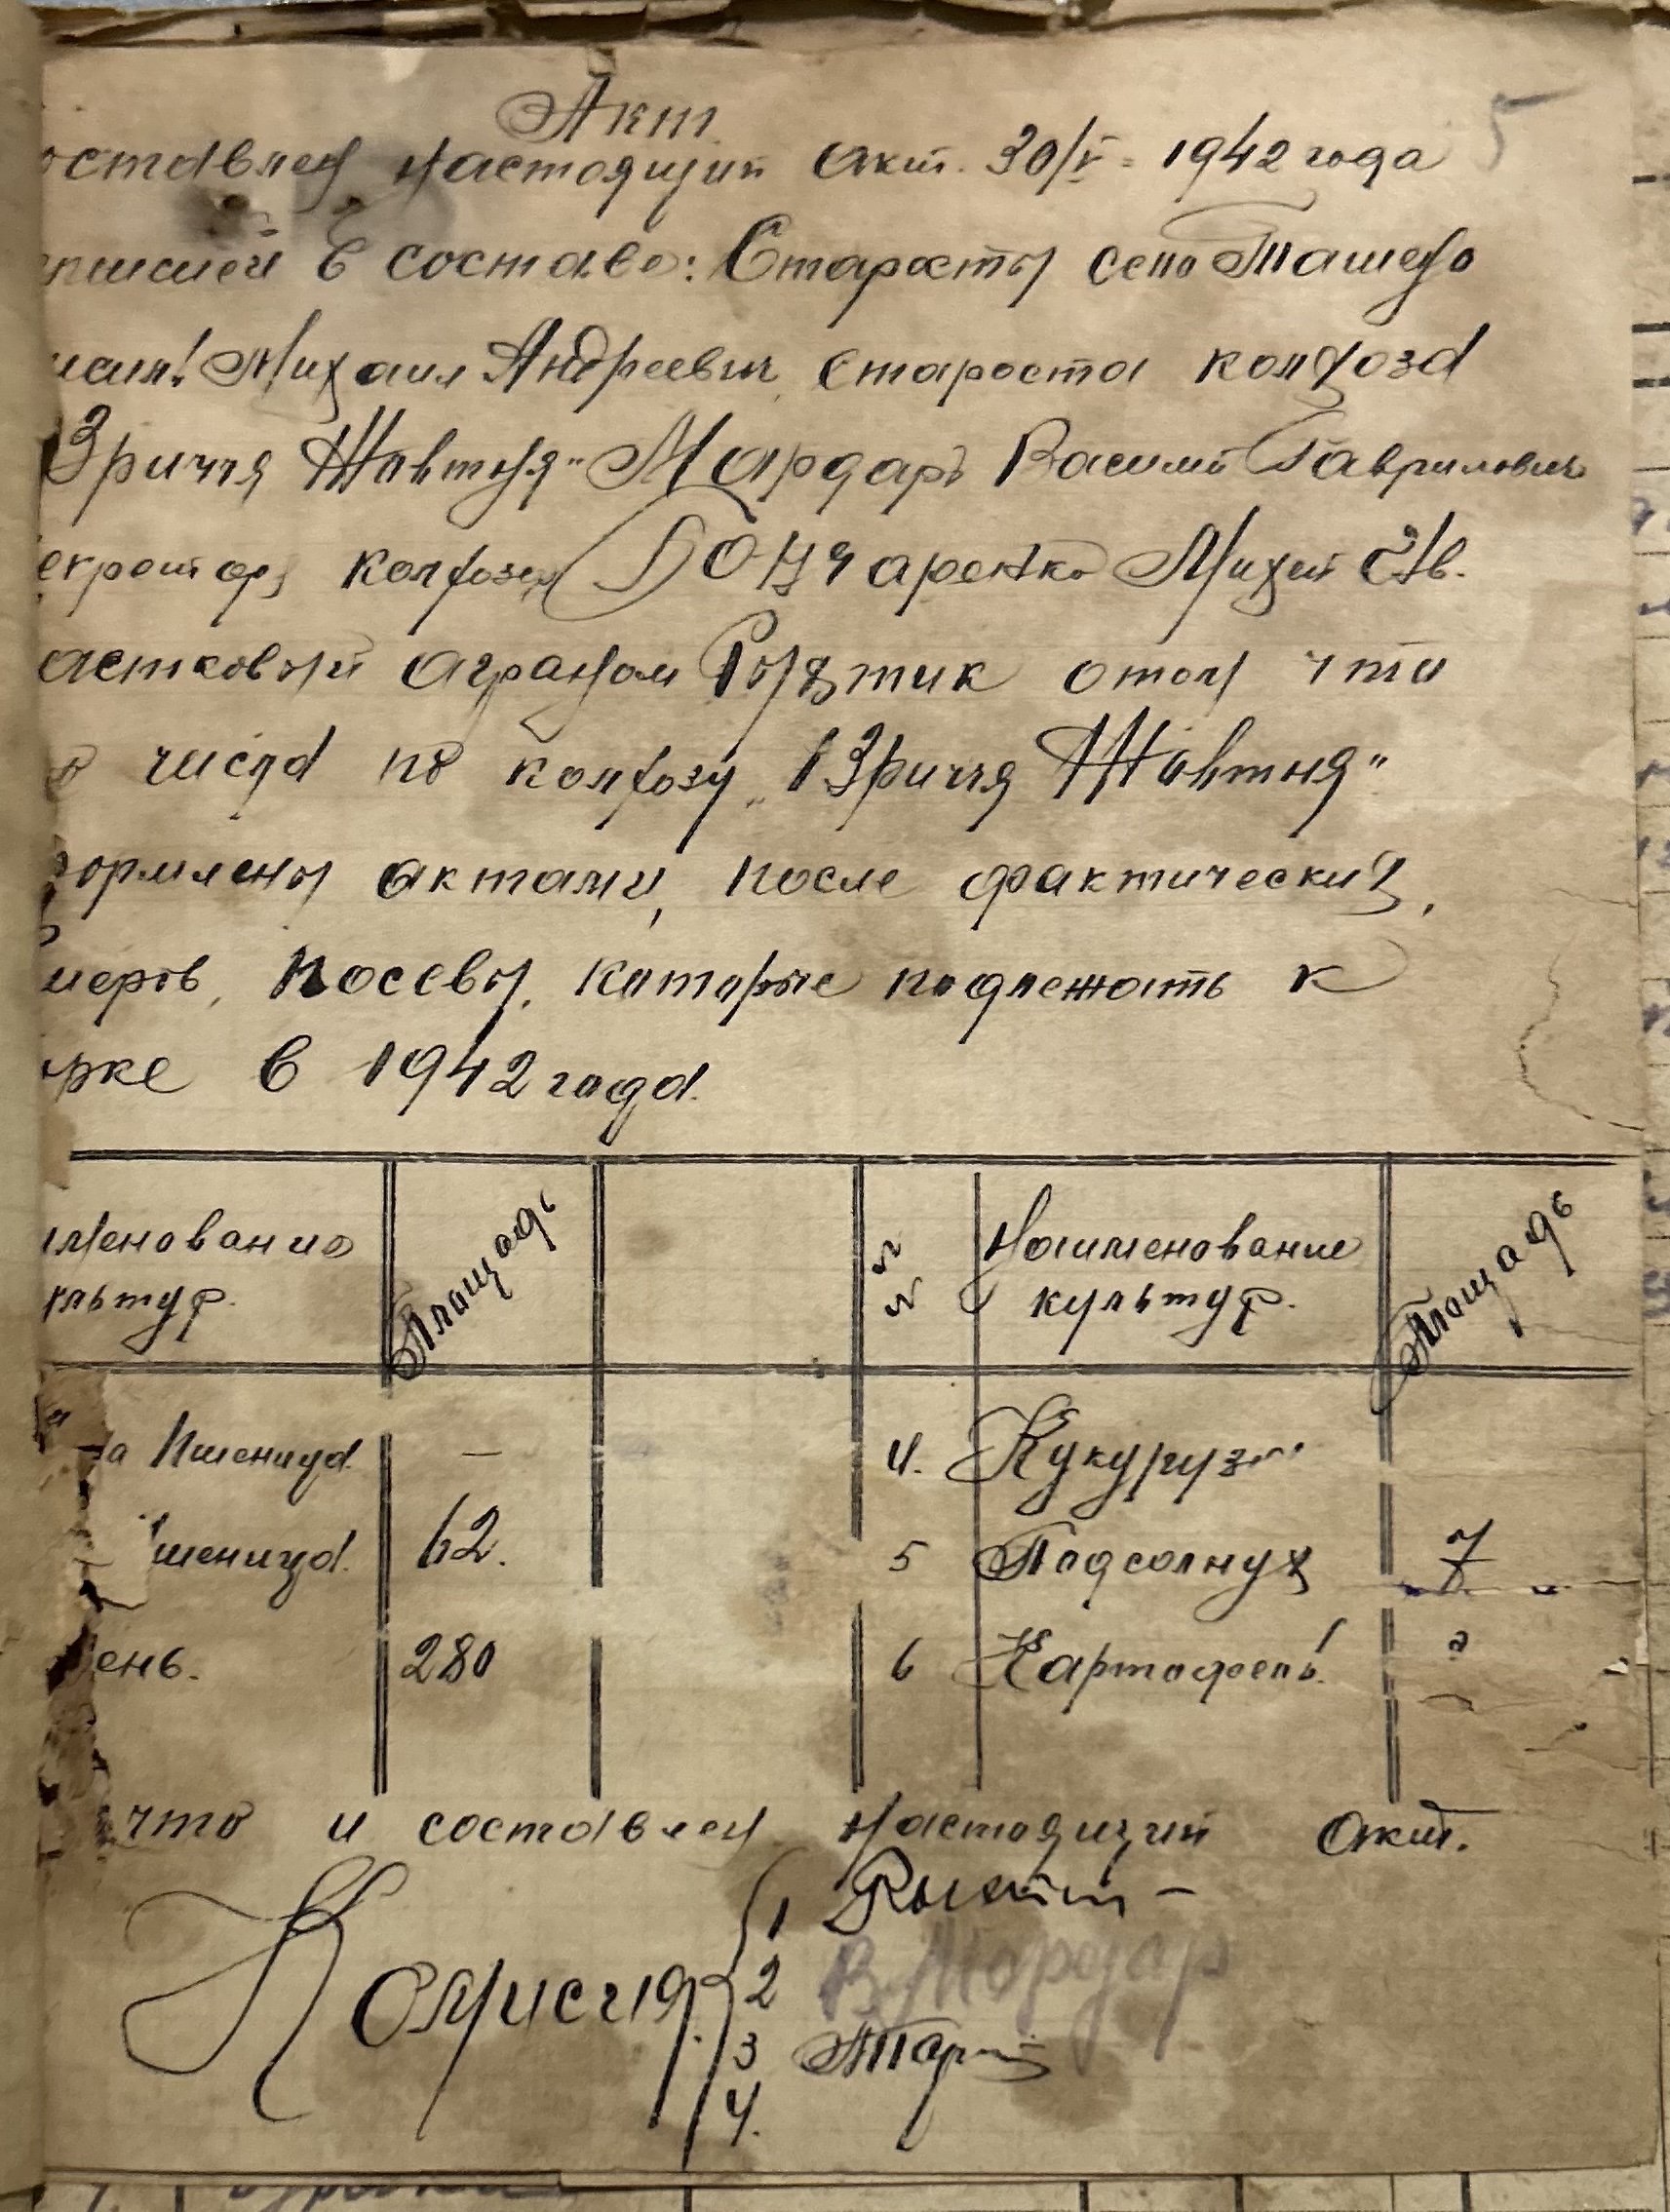 Акт
5
оставлен настоящий акт. 30/V = 1942 года
миссией в составе: Старосты село
Михаил Андреевич староста колхоза
13 річчя Жовтня" Мардарь Василий Гаврилович
екретарь колхоза Бончаренко Михей Ив.
астковый агроном отом что
числа по колхозу „13 річчя Жовтня"
ормлены актами, после фактических,
меров, посевы, которые подлежать к
орке в 1942 года.
именование
ультур.
Площадь
№
№
Наименование
культур.
Площадь
Пшеница
—
4.
Кукуруза
шеница
62.
5
Подсолнух
7
ень.
280
6
Картофель
что и составлен настоящий акт.
Комисия
1
2
В Мардар
3
4.